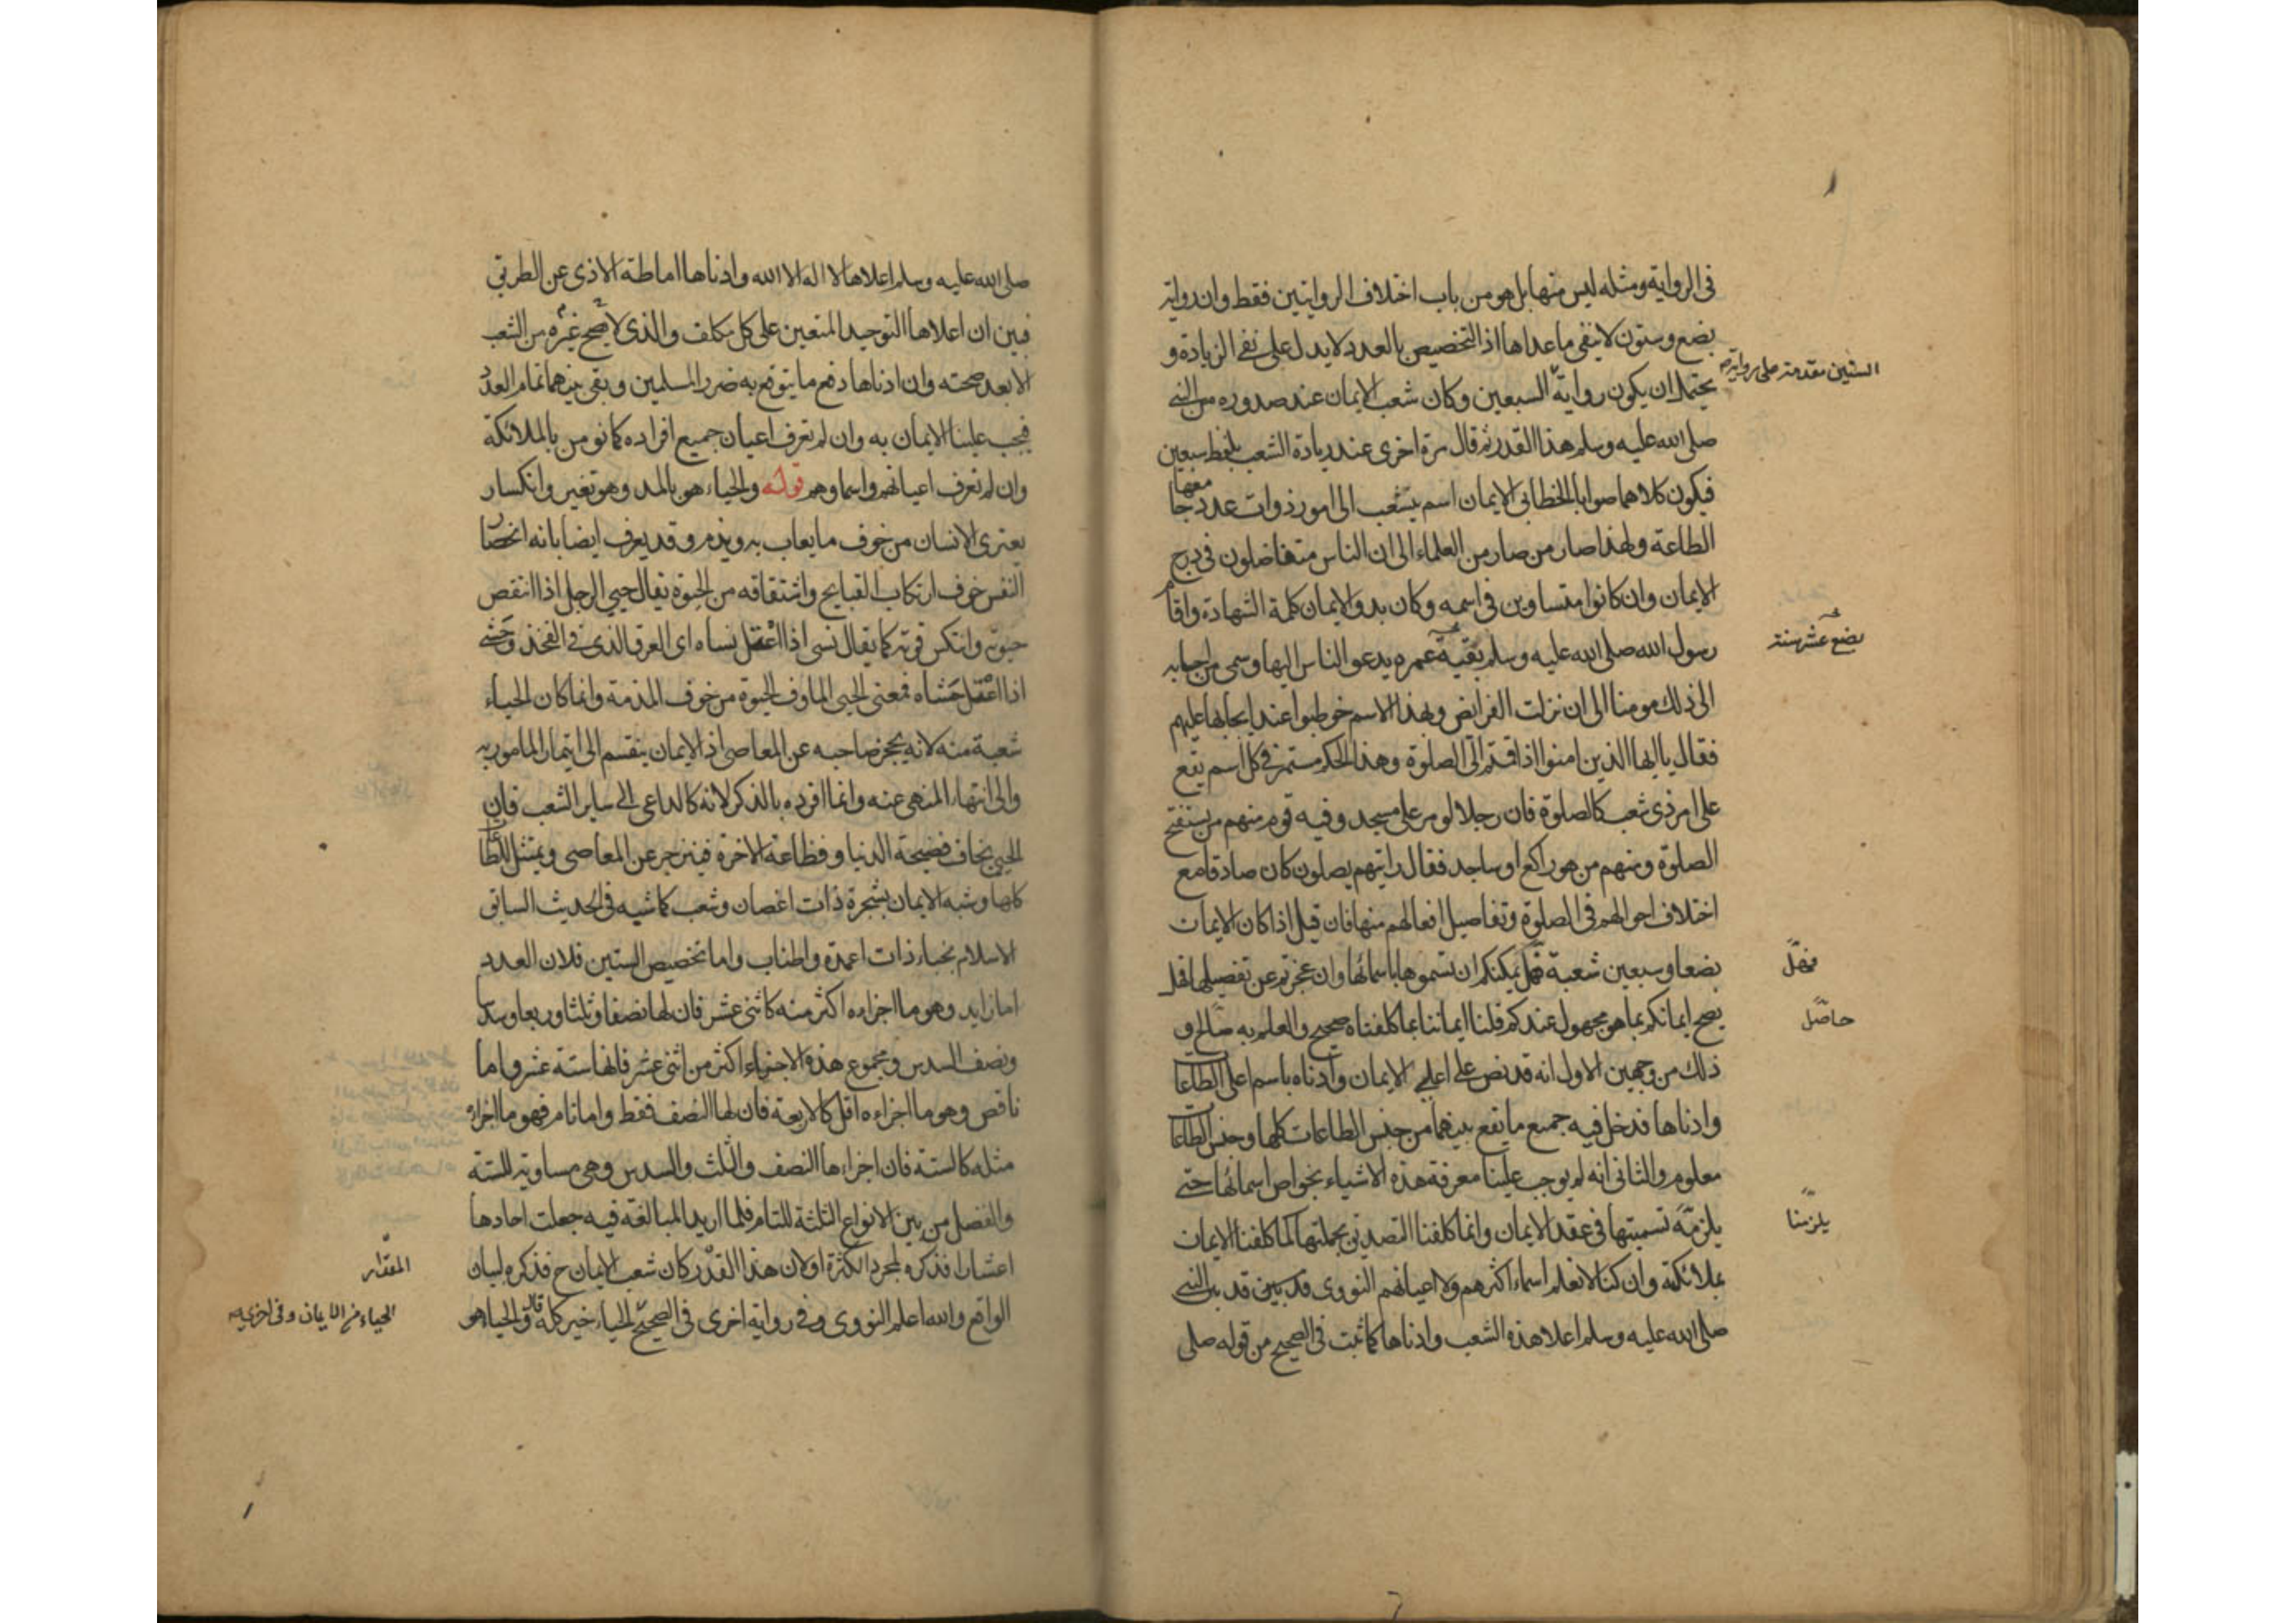 فى الرواية ومثله ليس منها بل هو من باب اختلاف الروايتين فقط وان رواية
بضع وستون لا ينفى ما عداها اذ التخصيص بالعدد لا يدل على نفى الزيادة و
الستين مقدمة على رواية
يحتمل ان يكون رواية السبعين وكان شعب الايمان عند صدوره من النبى
صلى الله عليه وسلم هذا القدر ثم قال مرة اخرى عند زيادة الشعب بلفظ سبعين
فيكون كلاهما صوابا الخطابى الايمان اسم يتشعب الى امور ذوات عدد جماعها
الطاعة ولهذا صار من صار من العلماء الى ان الناس متفاضلون فى درج
الايمان وان كانوا متساوين فى اسمه وكان بدو الايمان كلمة الشهادة واقام
رسول الله صلى الله عليه وسلم بقية عمره يدعو الناس اليها وسمى من اجابه
بضع عشر سنة
الى ذلك مومنا الى ان نزلت الفرايض وبهذا الاسم خوطبوا عند ايجابها عليهم
فقال يا ايها الذين امنوا اذا قمتم الى الصلوة وهذا الحكم مستمر فى كل اسم يقع
على امر ذى شعب كالصلوة فان رجلا لو مر على مسجد وفيه قوم منهم من يستفتح
الصلوة ومنهم من هو راكع او ساجد فقال رايتهم يصلون كان صادقا مع
اختلاف احوالهم فى الصلوة وتفاصيل افعالهم منها فان قيل اذا كان الايمان
بضعا وسبعين شعبة فهل يمكنكم ان تسموها باسمائها وان عجزتم عن تفصيلها فهل
فهل
يصح ايمانكم بما هو مجهول عندكم قلنا ايماننا بما كلفناه صحيح والعلم به حاصل و
حاصل
ذلك من وجهين الاول انه قد نص على اعلى الايمان وادناه باسم اعلى الطاعات
وادناها فدخل فيه جميع ما يقع بينهما من جنس الطاعات كلها وجنس الطاعات
معلوم والثانى انه لم يوجب علينا معرفة هذه الاشياء بخواص اسمائها حتى
يلزمه تسميتها فى عقد الايمان وانما كلفنا التصديق بجملتها كما كلفنا الايمان
يلزمنا
بملائكته وان كنا لا نعلم اسماء اكثرهم ولا اعيانهم النووى قد بين قد بين النبى
صلى الله عليه وسلم اعلا هذه الشعب وادناها كما ثبت فى الصحيح من قوله صلى
صلى الله عليه وسلم اعلاها لا اله الا الله وادناها اماطة الاذى عن الطريق
فبين ان اعلاها التوحيد المتعين على كل مكلف والذى لا يصح غيره من الشعب
الا بعد صحته وان ادناها دفع ما يتوقع به ضرر المسلمين وبقى بينهما تمام العدد
فيجب علينا الايمان به وان لم نعرف اعيان جميع افراده كما نومن بالملائكة
وان لم نعرف اعيانهم واسماوهم قوله والحياء هو بالمد وهو تغير وانكسار
يعترى الانسان من خوف ما يعاب به ويذم وقد يعرف ايضا بانه انحصار
النفس خوف ارتكاب القبايح واشتقاقه من الحيوة يقال حيى الرجل اذا انتقص
حيوته وانتكس قوته كما يقال نسى اذا اعتل نساه اى العرق الذى فى الفخذ وحشى
اذا اعتل حشاه فمعنى الحيى الماوف الحيوة من خوف المذمة وانما كان الحياء
شعبة منه لانه يحجز صاحبه عن المعاصى اذ الايمان ينقسم الى ايتمار المامور به
والى انتهاء المنهى عنه وانما افرده بالذكر لانه كالداعى الى ساير الشعب فان
الحيى يخاف فضيحة الدنيا وفظاعة الاخرة فينزجر عن المعاصى ويمتثل الطاعات
كلها وشبه الايمان بشجرة ذات اغصان وشعب كما شبه فى الحديث السابق
الاسلام بخباء ذات اعمدة واطناب واما تخصيص الستين فلان العدد
اما زايد وهو ما اجزاءه اكثر منه كاثنى عشر فان لها نصفا وثلثا وربعا وسدسا
ونصف السدس ومجموع هذه الاجزاء اكثر من اثنى عشر فانها ستة عشر واما
ناقص وهو ما اجزاءه اقل كالاربعة فان لها النصف فقط واما تام فهو ما اجزاءه
مثله كالستة فان اجزاءها النصف والثلث والسدس وهى مساوية للستة
والفضل من بين الانواع الثلثة للتام فلما اريد المبالغة فيه جعلت احادها
اعشارا فذكره لمجرد الكثرة او لان هذا القدر كان شعب الايمان ح فذكره لبيان
المقدار
الواقع والله اعلم النووى وفى رواية اخرى فى الصحيح الحياء خير كله قال والحيا هو
الحياء من الايمان وفى اخرى